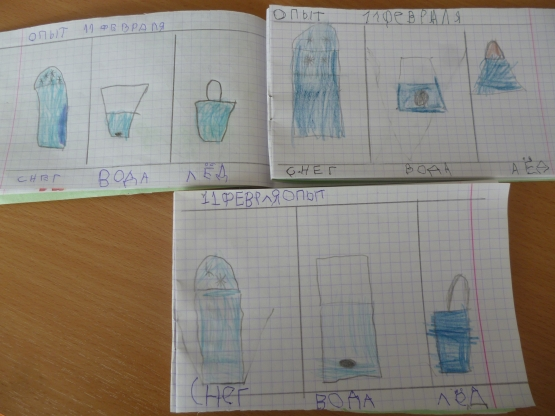 ОПЫТ 11 ФЕВРАЛЯ
СНЕГ ВОДА ЛЁД
ОПЫТ 11 ФЕВРАЛЯ
СНЕГ ВОДА ЛЁД
11 ФЕВРЛЯ ОПЫТ
СНЕГ ВОДА ЛЁД